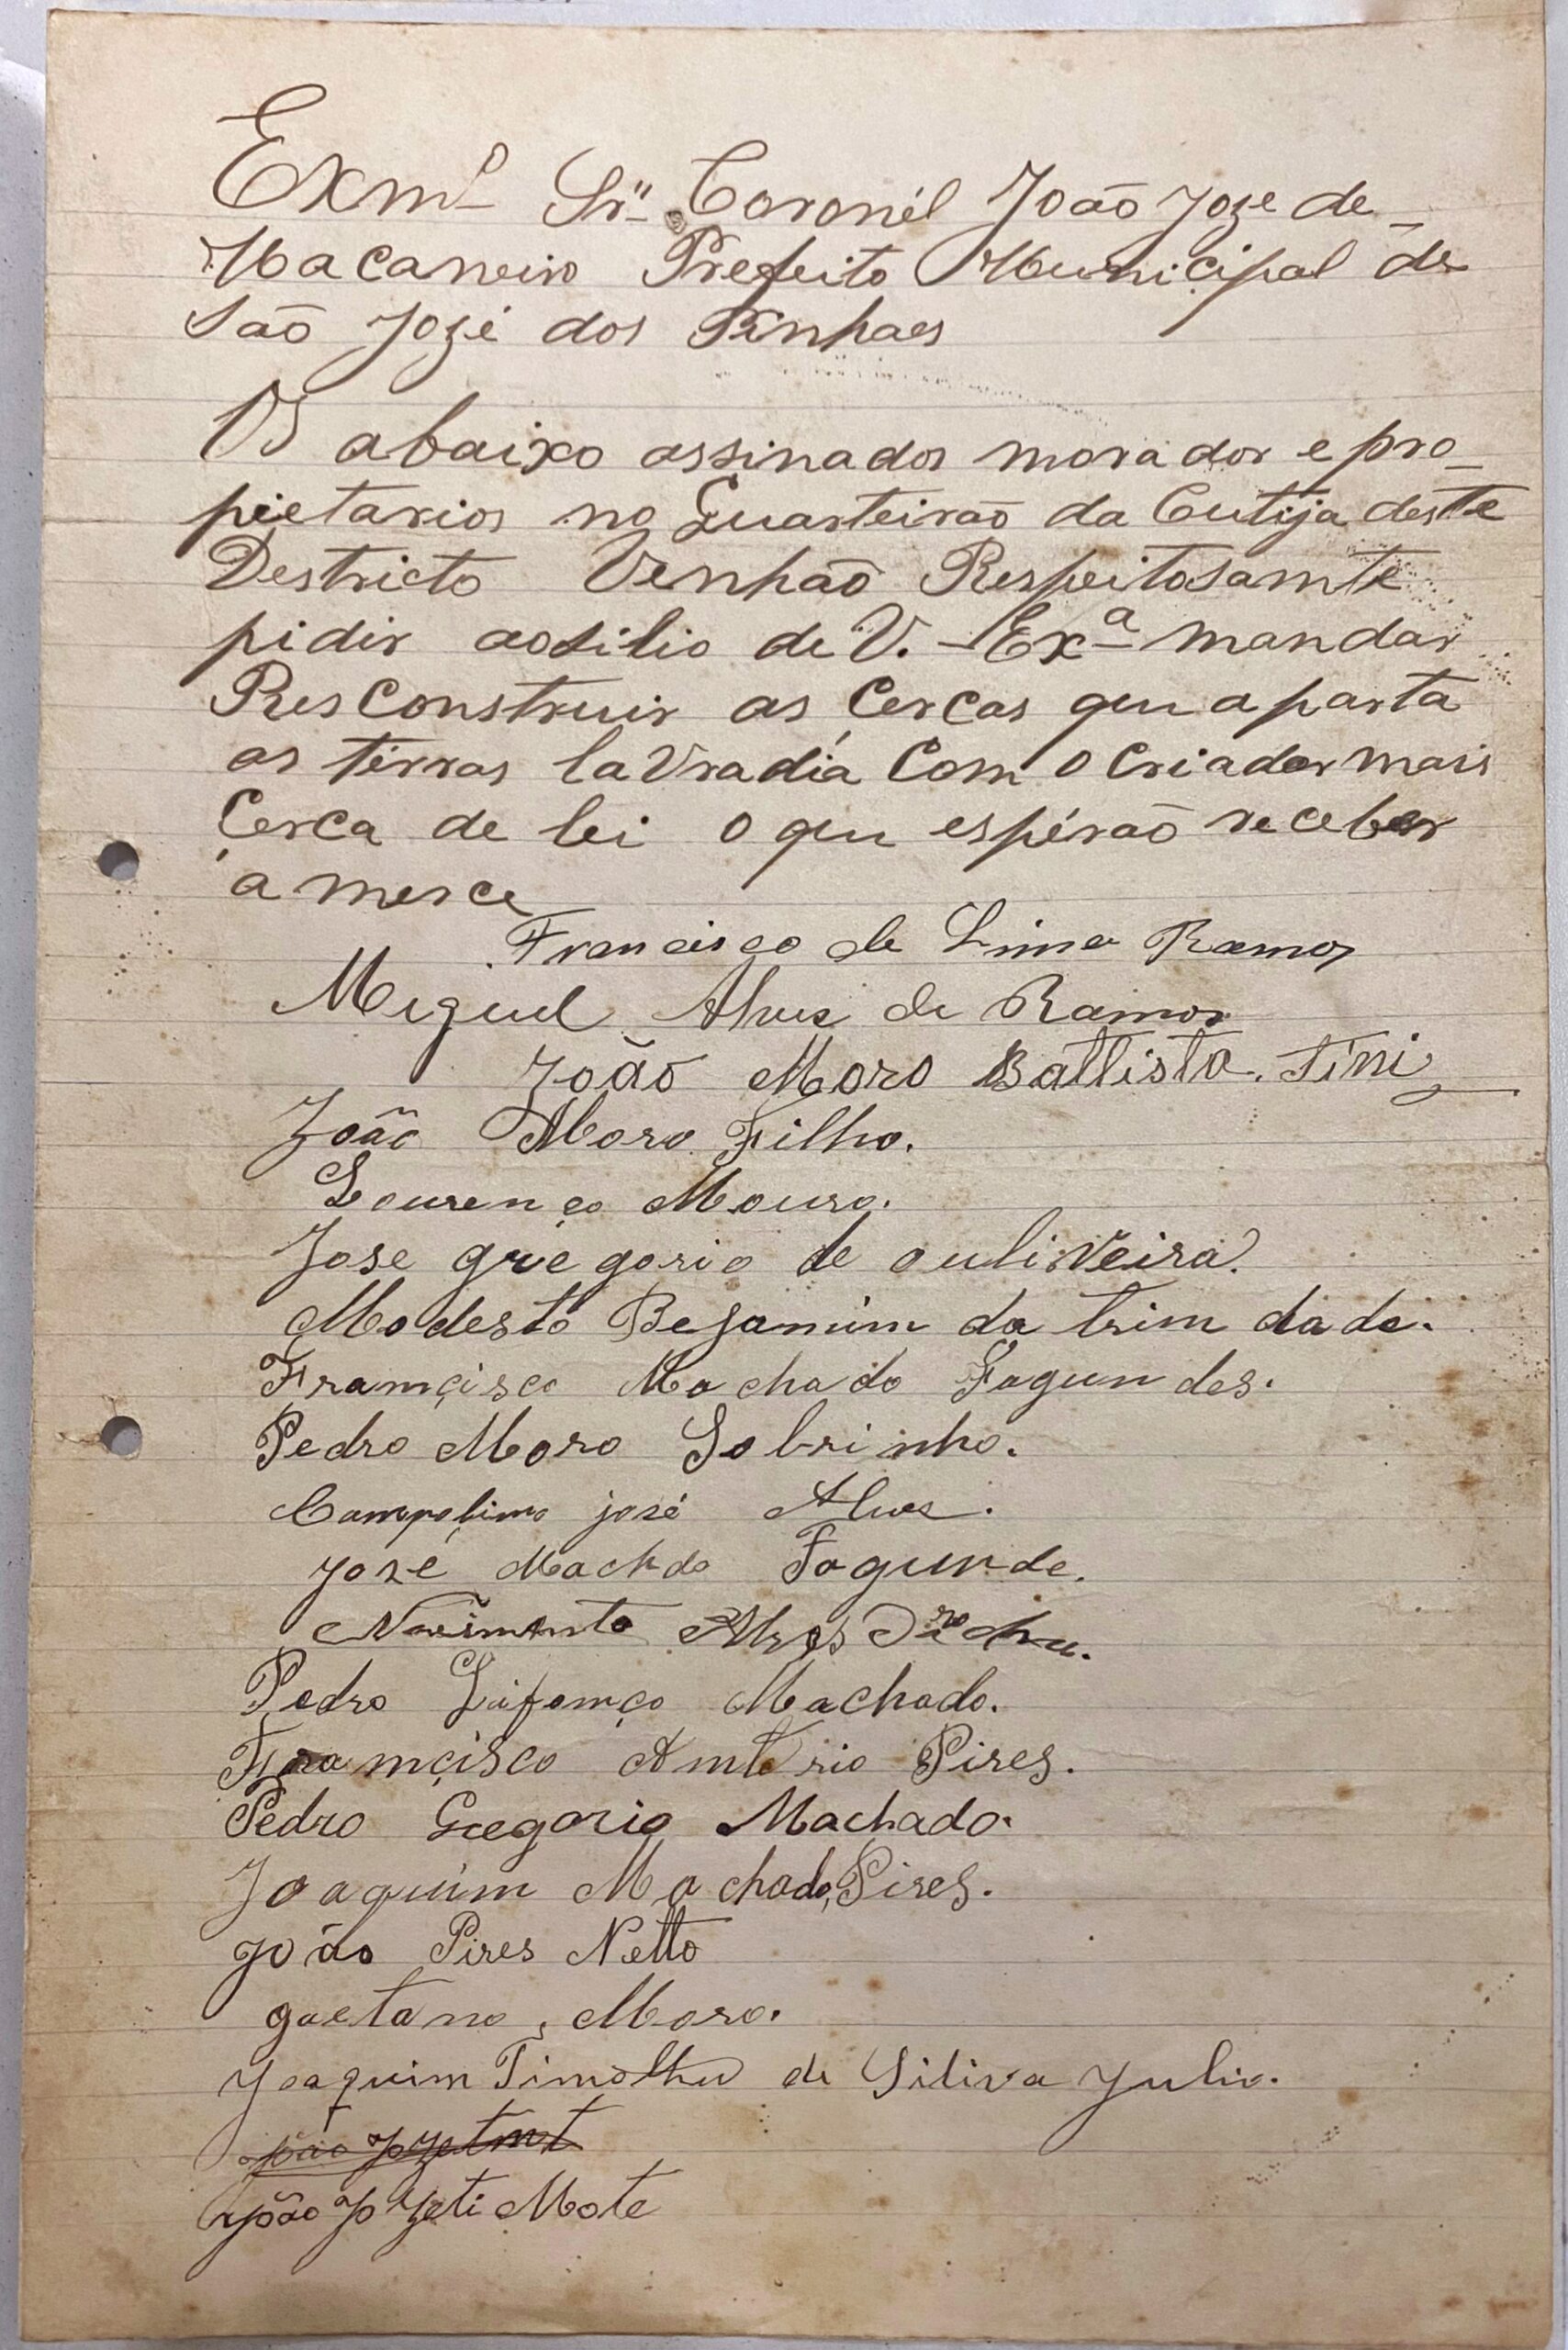 Exmº Srº Coronél João Joze de
Macaneiro Prefeito Municipal de
São Jozé dos Pinhaes
Os abaixo assinados morador e pro_
pietarios no Quarteirão da Cutija deste
Destricto Venhão Respeitosamte
pidir aosilio de V. Exª mandar
Resconstruir as Cercas qeu aparta
as terras lavradia Com o Criador mais
Cerca de lei o qeu espérão receber
a merce
Francisco de Lima Ramos
Meguel Alves de Ramos
João Moro Battista. Tini
João Moro Filho.
Lourenço Mouro.
Jose griegorio de oulivveira.
Modesto Bejamim da trim dade.
Framçisco Machado Fagundes.
Pedro Moro Sobrinho.
Campolimo josé Alves.
José Machdo Fagunde.
Alves
Pedro Machado.
Framçisco Amtório Pires.
Pedro Gregorio Machado.
Joaquim Machado Pires.
João Pires Netto
gaetano Moro.
Joaquim Timotheo de Siliva Julio.
João
João Mote